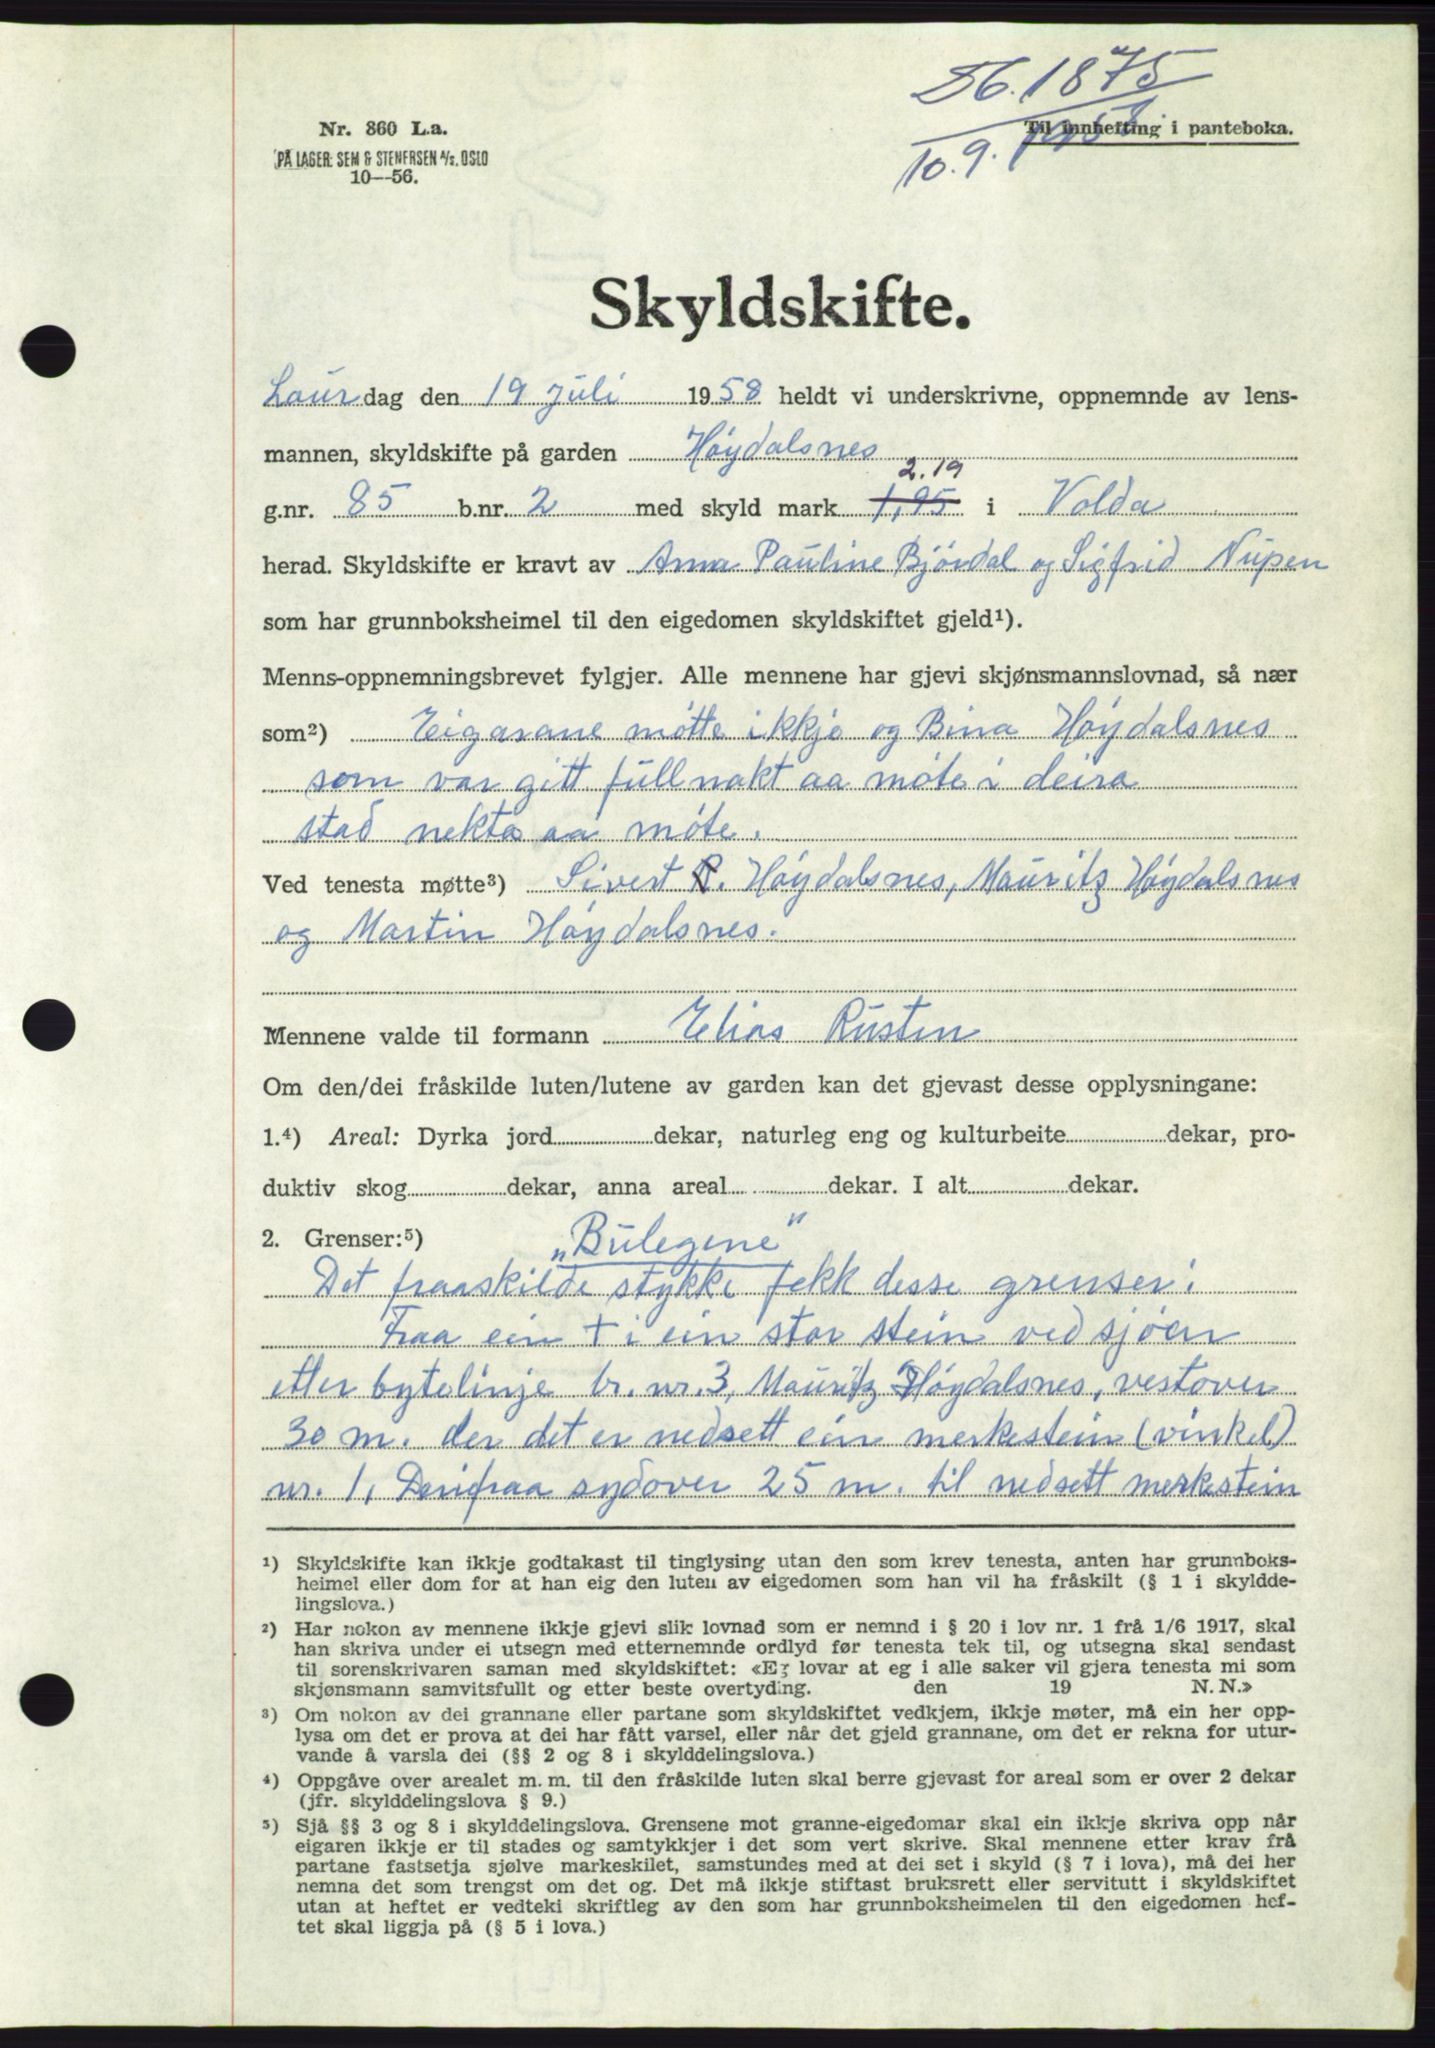 Db. 1875
10.9. 1958
Nr. 860 L.a.
PÅ LAGER: SEM & STENERSEN A/S. OSLO
10—56.
Til innhefting i panteboka.
Skyldskifte.
Laurdag den 19 juli 1958 heldt vi underskrivne, oppnemnde av lens-
mannen, skyldskifte på garden Høydalsnes
2.19
g.nr. 85 b.nr. 2 med skyld mark 1,95 i Volda
herad. Skyldskifte er kravt av Anna Pauline Bjørdal og Sigfrid Nupen
som har grunnboksheimel til den eigedomen skyldskiftet gjeld¹).
Menns-oppnemningsbrevet fylgjer. Alle mennene har gjevi skjønsmannslovnad, så nær
som²) Eigarane møtte ikkje og Bina Høydalsnes
som var gitt fullmakt aa møte i deira
stad nekta aa møte.
Ved tenesta møtte³) Sivert R. Høydalsnes, Mauritz Høydalsnes
og Martin Høydalsnes.
Mennene valde til formann Elias Rusten
Om den/dei fråskilde luten/lutene av garden kan det gjevast desse opplysningane:
1.⁴) Areal: Dyrka jord dekar, naturleg eng og kulturbeite dekar, pro-
duktiv skog dekar, anna areal dekar. I alt dekar.
2. Grenser:⁵) „Bulegene"
Det fraaskilde stykke fekk desse grenser:
Fraa ein + i ein stor stein ved sjøen
etter bytelinje br. nr. 3, Mauritz Høydalsnes, vestover
30 m. der det er nedsett ein merkestein (vinkel)
nr. 1, Derifraa sydover 25 m. til nedsett merkestein
¹) Skyldskifte kan ikkje godtakast til tinglysing utan den som krev tenesta, anten har grunnboks-
heimel eller dom for at han eig den luten av eigedomen som han vil ha fråskilt (§ 1 i skyldde-
lingslova.)
²) Har nokon av mennene ikkje gjevi slik lovnad som er nemnd i § 20 i lov nr. 1 frå 1/6 1917, skal
han skriva under ei utsegn med etternemnde ordlyd før tenesta tek til, og utsegna skal sendast
til sorenskrivaren saman med skyldskiftet: «Eg lovar at eg i alle saker vil gjera tenesta mi som
skjønsmann samvitsfullt og etter beste overtyding. den 19 N. N.»
³) Om nokon av dei grannane eller partane som skyldskiftet vedkjem, ikkje møter, må ein her opp-
lysa om det er prova at dei har fått varsel, eller når det gjeld grannane, om det er rekna for utur-
vande å varsla dei (§§ 2 og 8 i skylddelingslova.)
⁴) Oppgåve over arealet m. m. til den fråskilde luten skal berre gjevast for areal som er over 2 dekar
(jfr. skylddelingslova § 9.)
⁵) Sjå §§ 3 og 8 i skylddelingslova. Grensene mot granne-eigedomar skal ein ikkje skriva opp når
eigaren ikkje er til stades og samtykkjer i det som vert skrive. Skal mennene etter krav frå
partane fastsetja sjølve markeskilet, samstundes med at dei set i skyld (§ 7 i lova), må dei her
nemna det som trengst om det og. Det må ikkje stiftast bruksrett eller servitutt i skyldskiftet
utan at heftet er vedteki skriftleg av den som har grunnboksheimelen til den eigedomen hef-
tet skal liggja på (§ 5 i lova.)